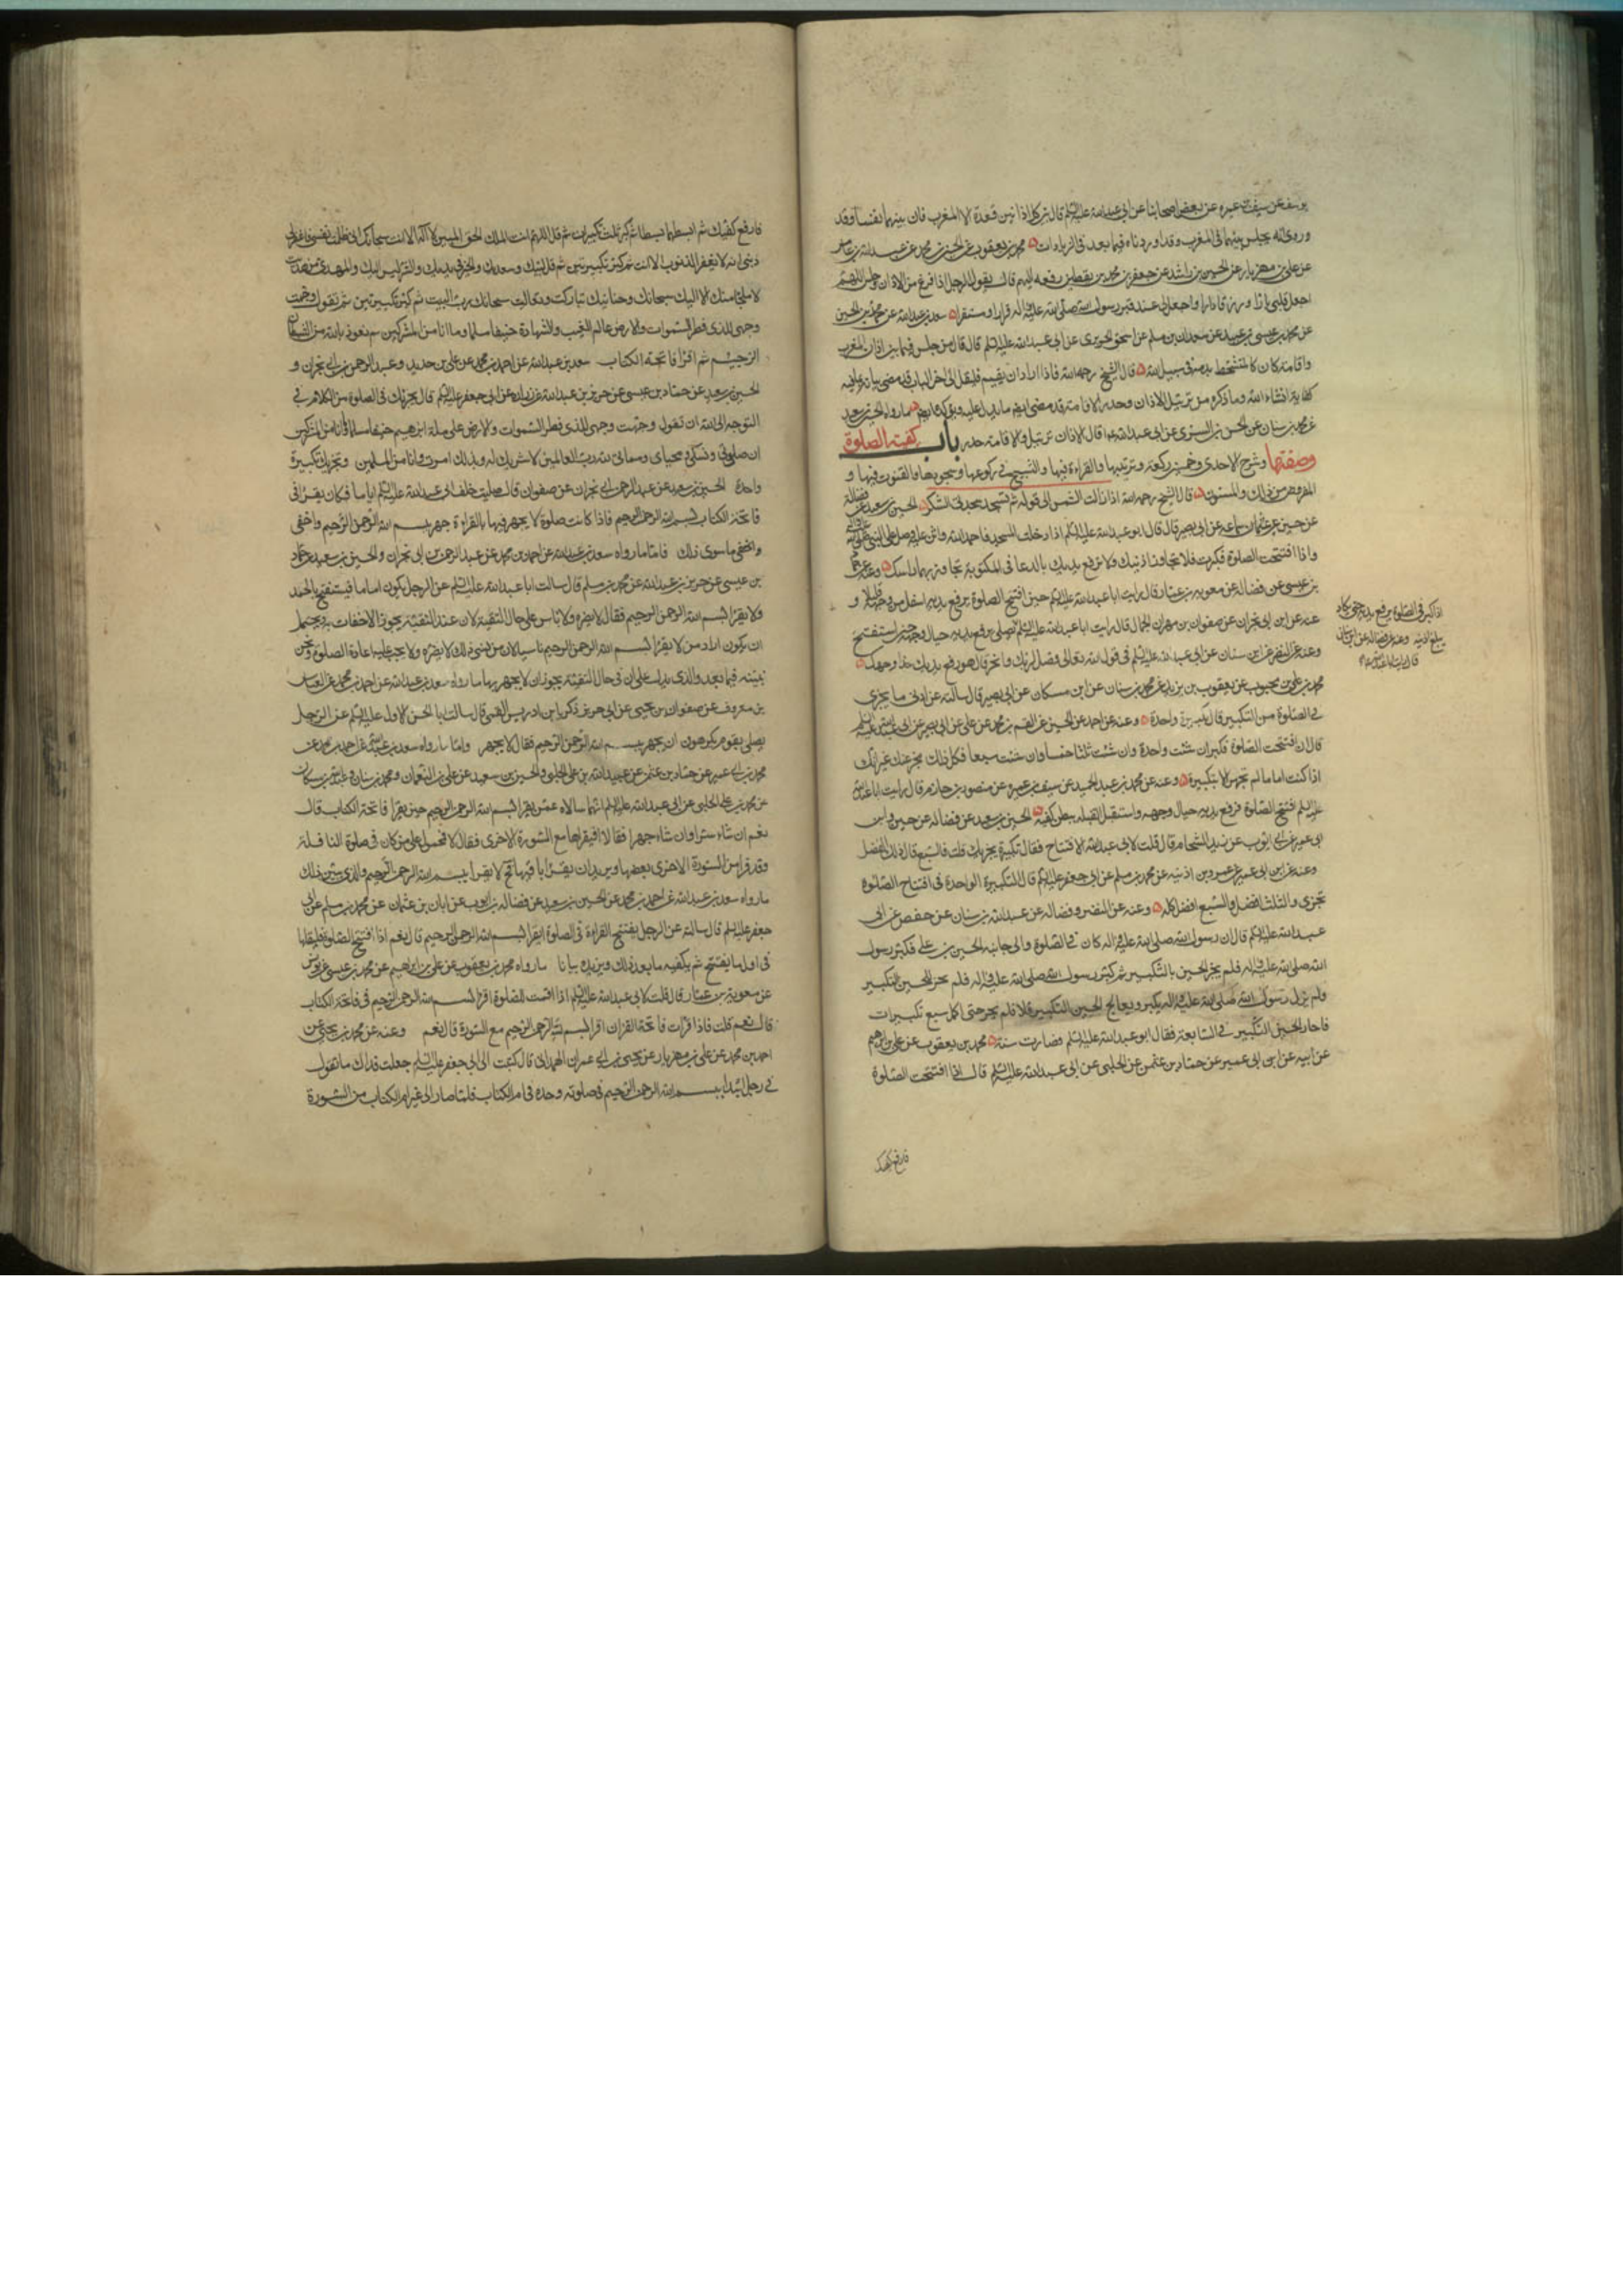 يوسف عن سيف بن عميرة عن بعض اصحابنا عن ابي عبدالله عليه السلم قال بين كل اذانين قعدة الا المغرب فان بينهما نفسا وقد
وروى انه يجلس بينهما في المغرب وقد اوردناه فيما بعد في الزيادات محمد بن يعقوب عن الحسين بن محمد عن عبدالله بن عامر
عن علي بن مهزيار عن الحسين بن راشد عن جعفر بن محمد بن يقطين رفعه اليهم قال يقول الرجل اذا فرغ من الاذان وجلس اللهم
اجعل قلبي بارا ورزقي دارا واجعل لي عند قبر رسول الله صلى الله عليه واله قرارا ومستقرا سعد بن عبدالله عن محمد بن الحسين
عن سعدان بن مسلم عن اسحق الجريري عن ابي عبدالله عليه السلم قال قال من جلس فيما بين اذان المغرب
واقامته كان كالمتشحط بدمه في سبيل الله قال الشيخ رحمه الله فاذا اراد ان يقيم فليقل الى اخر الباب فقد مضى بيانه
كفاية انشاء الله وما ذكره من ترتيل الاذان وحدر الاقامة فقد مضى ايضا ما يدل عليه ما رواه الحسين بن سعيد
عن محمد بن سنان عن الحسن بن السري عن ابي عبدالله قال الاذان ترتيل والاقامة حدر باب كيفية الصلوة
وصفتها وشرح الاحدى وخمسين ركعة وترتيبها والقراءة فيها والتسبيح في ركوعها وسجودها والقنوت فيها و
المفروض من ذلك والمسنون قال الشيخ رحمه الله اذا زالت الشمس الى قوله ثم تسجد سجدتي الشكر الحسين بن سعيد عن فضالة
عن حسين عن سماعة عن ابي بصير قال قال ابو عبدالله عليه السلم اذا دخلت المسجد فاحمد الله واثن عليه وصل على النبي
واذا افتتحت الصلوة فكبرت فلا تجاوز اذنيك ولا ترفع يديك بالدعا في المكتوبة تجاوز بهما راسك وعنه عن حماد
بن عيسى عن فضالة عن معوية بن عمار قال رايت ابا عبدالله عليه السلم حين افتتح الصلوة يرفع يديه اسفل من وجهه قليلا و
عنه عن ابن ابي نجران عن صفوان بن مهران الجمال قال رايت ابا عبدالله عليه السلم يصلي يرفع يديه حيال وجهه حين استفتح
وعنه عن النضر عن ابن سنان عن ابي عبدالله عليه السلم في قول الله تعالى فصل لربك وانحر قال هو رفع يديك حذا وجهك
محمد بن علي بن محبوب عن يعقوب بن يزيد عن محمد بن سنان عن ابن مسكان عن ابي بصير قال سالته عن ادنى ما يجزي
في الصلوة من التكبير قال تكبيرة واحدة وعنه عن احمد عن الحسين عن القسم بن محمد عن علي عن ابي بصير عن ابي عبدالله عليه السلم
قال اذا افتتحت الصلوة فكبر ان شئت واحدة وان شئت ثلثا وان شئت خمسا وان شئت سبعا فكل ذلك مجز عنك غير انك
اذا كنت اماما لم تجهر الا بتكبيرة وعنه عن محمد بن عبد الحميد عن سيف بن عميرة عن منصور بن حازم قال رايت ابا عبدالله
عليه السلم افتتح الصلوة فرفع يديه حيال وجهه واستقبل القبلة ببطن كفيه الحسين بن سعيد عن فضالة عن حسين وابن
ابي عمير عن ابي ايوب عن زيد الشحام قال قلت لابي عبدالله الافتتاح فقال تكبيرة تجزيك قلت فالسبع قال ذلك الفضل
وعنه عن ابن ابي عمير عن عمر بن اذينة عن محمد بن مسلم عن ابي جعفر عليه السلم قال التكبيرة الواحدة في افتتاح الصلوة
تجزي والثلث افضل والسبع افضل كله وعنه عن النضر وفضالة عن عبدالله بن سنان عن حفص عن ابي
عبدالله عليه السلم قال ان رسول الله صلى الله عليه واله كان في الصلوة والى جانبه الحسين بن علي فكبر رسول
الله صلى الله عليه واله فلم يحر الحسين بالتكبير ثم كبر رسول الله صلى الله عليه واله فلم يحر الحسين التكبير
ولم يزل رسول الله صلى الله عليه واله يكبر ويعالج الحسين التكبير فلم يحر حتى اكمل سبع تكبيرات
فاحار الحسين التكبير في السابعة فقال ابو عبدالله عليه السلم فصارت سنة محمد بن يعقوب عن علي بن ابراهيم
عن ابيه عن ابن ابي عمير عن حماد بن عثمن عن الحلبي عن ابي عبدالله عليه السلم قال اذا افتتحت الصلوة
اذا كبر في الصلوة يرفع يديه حتى يكاد
يبلغ اذنيه وعنه عن فضالة عن ابن سنان
قال رايت ابا عبدالله
فارفع كفيك
فارفع كفيك ثم ابسطهما بسطا ثم كبر ثلث تكبيرات ثم قل اللهم انت الملك الحق المبين لا اله الا انت سبحانك اني ظلمت نفسي فاغفر لي
ذنبي انه لا يغفر الذنوب الا انت ثم كبر تكبيرتين ثم قل لبيك وسعديك والخير في يديك والشر ليس اليك والمهدي من هديت
لا ملجا منك الا اليك سبحانك وحنانيك تباركت وتعاليت سبحانك رب البيت ثم كبر تكبيرتين ثم تقول وجهت
وجهي للذي فطر السموات والارض عالم الغيب والشهادة حنيفا مسلما وما انا من المشركين ثم تعوذ بالله من الشيطان
الرجيم ثم اقرا فاتحة الكتاب سعد بن عبدالله عن احمد بن محمد عن علي بن حديد وعبد الرحمن بن ابي نجران و
الحسين بن سعيد عن حماد بن عيسى عن حريز بن عبدالله عن زرارة عن ابي جعفر عليه السلم قال يجزيك في الصلوة من الكلام في
التوجه الى الله ان تقول وجهت وجهي للذي فطر السموات والارض على ملة ابرهيم حنيفا مسلما وما انا من المشركين
ان صلوتي ونسكي ومحياي ومماتي لله رب العالمين لا شريك له وبذلك امرت وانا من المسلمين وتجزيك تكبيرة
واحدة الحسين بن سعيد عن عبد الرحمن بن ابي نجران عن صفوان قال صليت خلف ابي عبدالله عليه السلم اياما فكان يقرا في
فاتحة الكتاب بسم الله الرحمن الرحيم فاذا كانت صلوة لا يجهر فيها بالقراءة جهر ببسم الله الرحمن الرحيم واخفى
واخفى ما سوى ذلك فاما ما رواه سعد بن عبدالله عن احمد بن محمد عن عبد الرحمن بن ابي نجران والحسين بن سعيد عن حماد
بن عيسى عن حريز بن عبدالله عن محمد بن مسلم قال سالت ابا عبدالله عليه السلم عن الرجل يكون اماما فيستفتح بالحمد
ولا يقرا بسم الله الرحمن الرحيم فقال لا يضره ولا باس على حال التقية لان عند التقية يجوز الاخفات به ويحتمل
ان يكون اراد من لا يقرا بسم الله الرحمن الرحيم ناسيا لان من نسي ذلك لا يضره ولا يجب عليه اعادة الصلوة ونحن
نبينه فيما بعد والذي يدل على ان في حال التقية يجوز ان لا يجهر بها ما رواه سعد بن عبدالله عن احمد بن محمد عن العباس
بن معروف عن صفوان بن يحيى عن ابي جرير زكريا بن ادريس القمي قال سالت ابا الحسن الاول عليه السلم عن الرجل
يصلي بقوم يكرهون ان يجهر ببسم الله الرحمن الرحيم فقال لا يجهر واما ما رواه سعد بن عبدالله عن احمد بن محمد عن
محمد بن ابي عمير عن حماد بن عثمن عن عبيدالله بن علي الحلبي والحسين بن سعيد عن علي بن النعمان ومحمد بن سنان وعبدالله بن مسكان
عن محمد بن علي الحلبي عن ابي عبدالله عليه السلم انهما سالاه عمن يقرا بسم الله الرحمن الرحيم حين يقرا فاتحة الكتاب قال
نعم ان شاء سرا وان شاء جهرا فقالا افيقراها مع السورة الاخرى فقال لا فمحمول على من كان في صلوة النافلة
وقد قرا من السورة الاخرى بعضها ويريد ان يقرا باقيها لا يقرا ببسم الله الرحمن الرحيم والذي يبين ذلك
ما رواه سعد بن عبدالله عن احمد بن محمد عن الحسين بن سعيد عن فضالة بن ايوب عن ابان بن عثمان عن محمد بن مسلم عن ابي
جعفر عليه السلم قال سالته عن الرجل يفتتح القراءة في الصلوة ايقرا بسم الله الرحمن الرحيم قال نعم اذا افتتح الصلوة فليقلها
في اول ما يفتتح ثم يكفيه ما بعد ذلك ويزيده بيانا ما رواه محمد بن يعقوب عن علي بن ابراهيم عن محمد بن عيسى عن يونس
عن معوية بن عمار قال قلت لابي عبدالله عليه السلم اذا اقمت الصلوة اقرا بسم الله الرحمن الرحيم في فاتحة الكتاب
قال نعم قلت فاذا قرات فاتحة القران اقرا بسم الله الرحمن الرحيم مع السورة قال نعم وعنه عن محمد بن يحيى عن
احمد بن محمد عن علي بن مهزيار عن يحيى بن ابي عمران الهمداني قال كتبت الى ابي جعفر عليه السلم جعلت فداك ما تقول
في رجل ابتدا ببسم الله الرحمن الرحيم في صلوته وحده في ام الكتاب فلما صار الى غير ام الكتاب من السورة